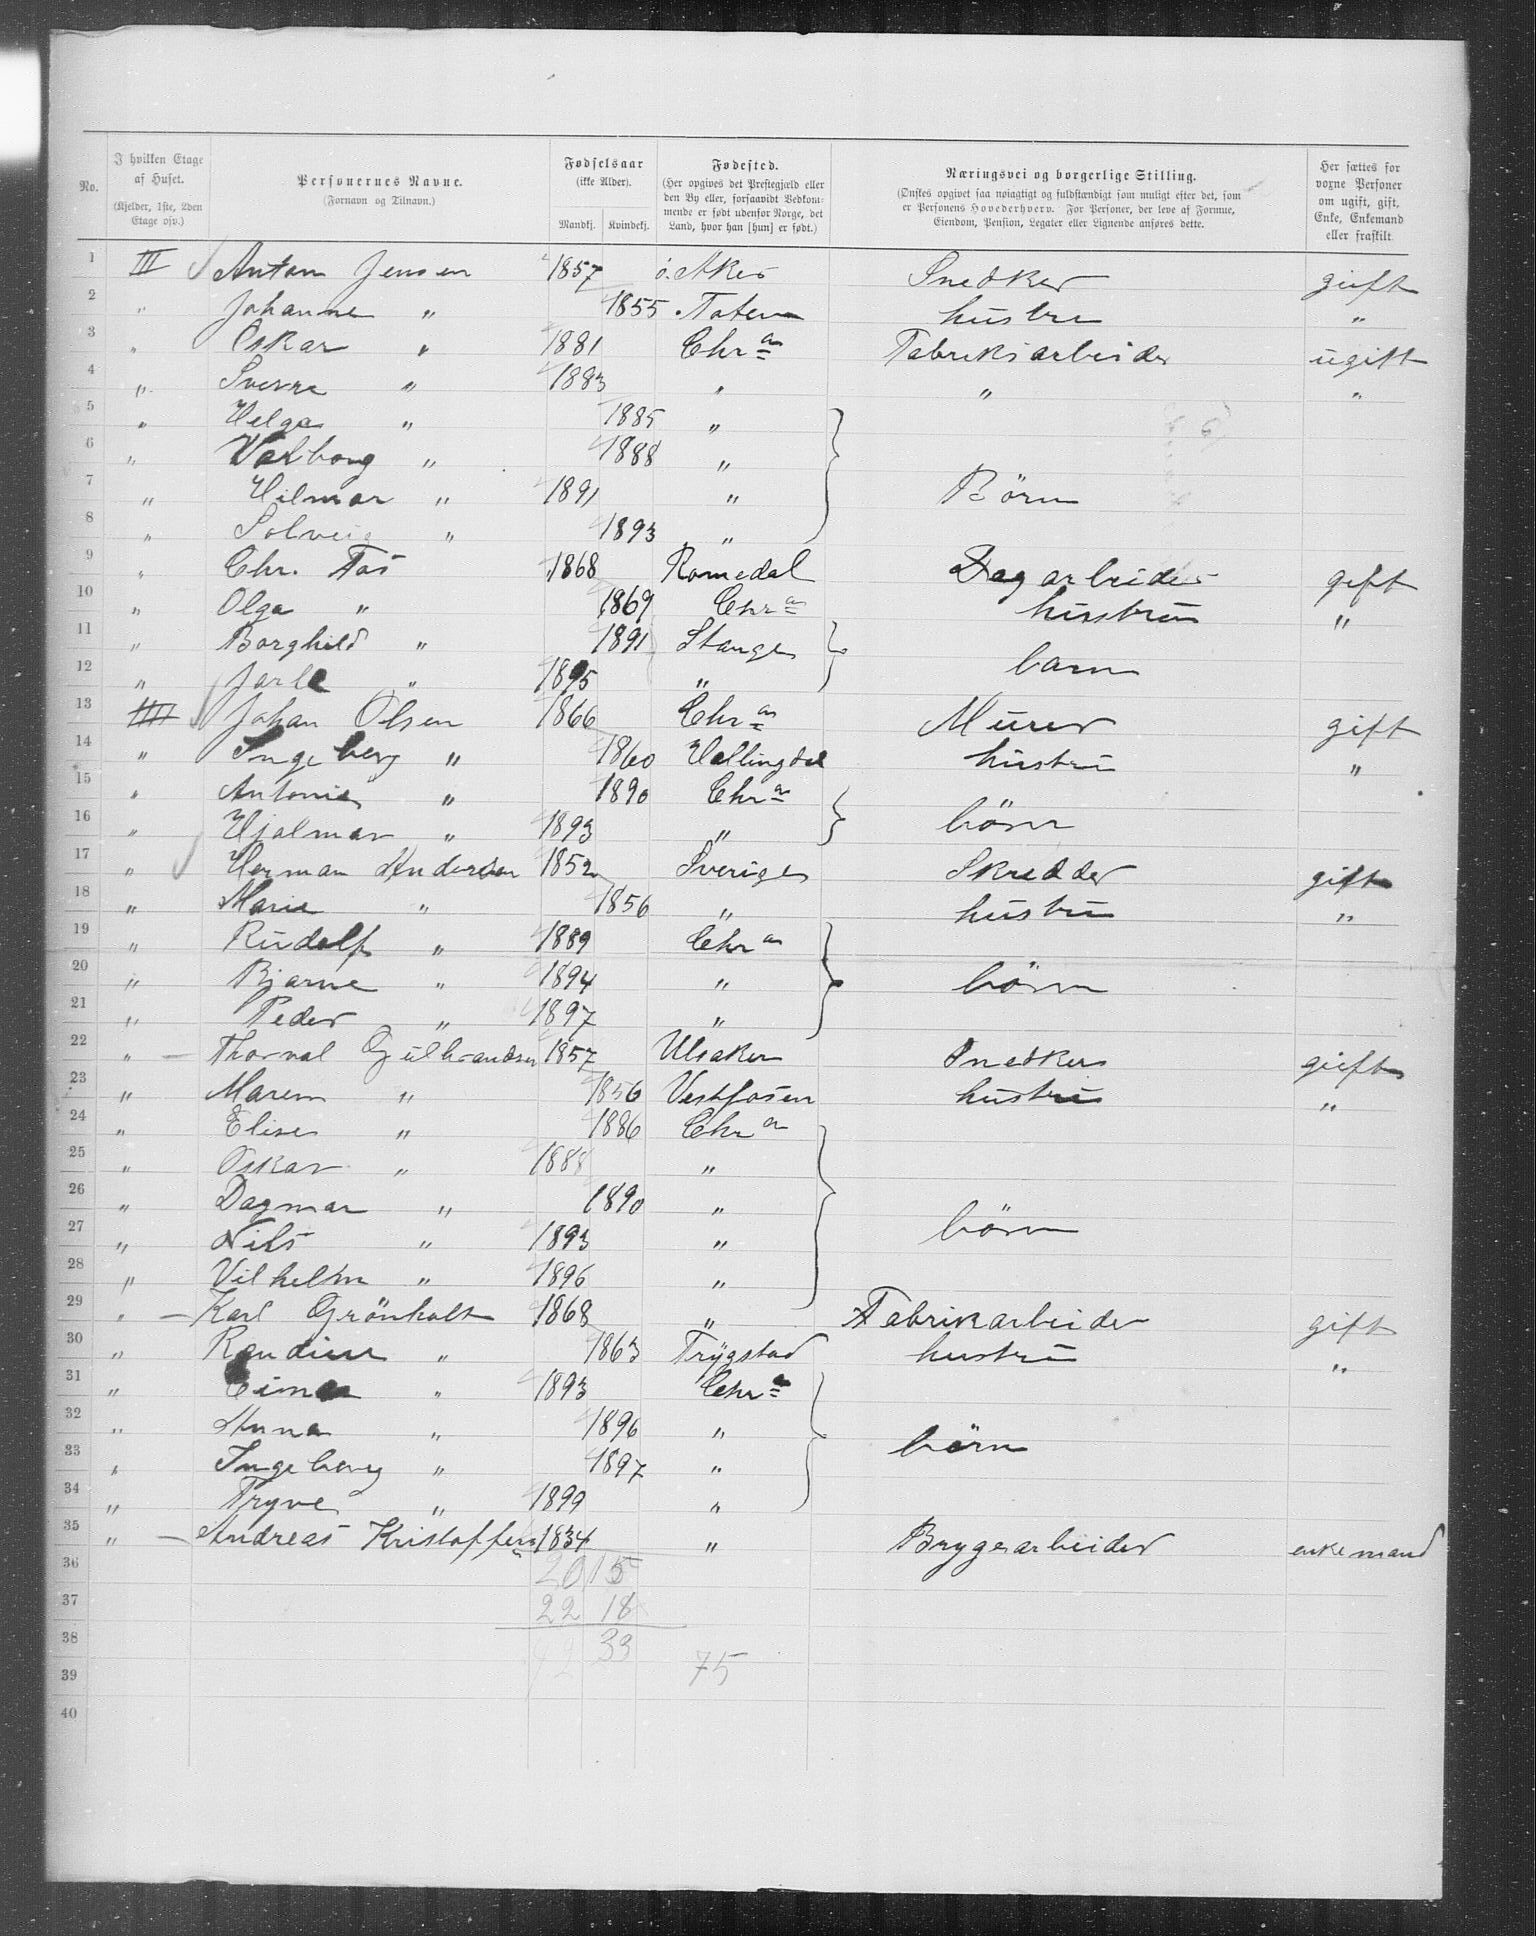 No.
I hvilken Etage af Huset. (Kjelder, 1ste, 2den Etage osv.)
Personernes Navne. (Fornavn og Tilnavn.)
Fødselsaar (ikke Alder). Mandkj. Kvindekj.
Fødested. (Her opgives det Prestegjæld eller den By eller, forsaavidt Vedkommende er født udenfor Norge, det Land, hvor han [hun] er født.)
Næringsvei og borgerlige Stilling. (Ønskes opgivet saa nøiagtigt og fuldstændigt som muligt efter det, som er Personens Hovederhverv. For Personer, der leve af Formue, Eiendom, Pension, Legater eller Lignende anføres dette.
Her sættes for voxne Personer om ugift, gift, Enke, Enkemand eller fraskilt.
1 III Anton Jensen 1857 ö. Aker Snedker gift
2 " Johanne " 1855 Toten hustru "
3 " Oskar " 1881 Chr a Fabriksarbeider ugift
4 " Sverre " 1883 " " "
5 " Helga " 1885 "
6 " Valborg " 1888 "
7 " Hilmar " 1891 " Börn
8 " Solveig " 1893 "
9 " Chr. Fos 1868 Romedal Dagarbeider gift
10 " Olga " 1869 Chr a hustru "
11 " Borghild " 1891 Stange
12 " Jarle " 1895 " barn
13 IIII Johan Olsen 1866 Chr a Murer gift
14 " Ingeborg " 1860 Hallingdal hustru "
15 " Antonie " 1890 Chr a
16 " Hjalmar " 1893 " börn
17 " Herman Andersen 1852 Sverige Skredder gift
18 " Marie " 1856 " hustru "
19 " Rudolf " 1889 Chr a
20 " Bjarne " 1894 " börn
21 " Peder " 1897 "
22 " Thorval Gulbrandsen 1857 Ulsaker Snedker gift
23 " Maren " 1856 Vestfosen hustru "
24 " Elise " 1886 Chr a
25 " Oskar " 1888 "
26 " Dagmar " 1890 "
27 " Nils " 1893 " börn
28 " Vilhelm " 1896 "
29 " Karl Grönholt 1868 " Fabrikarbeider gift
30 " Randine " 1863 Trygstad hustru "
31 " Einar " 1893 Chr a
32 " Anna " 1896 "
33 " Ingeborg " 1897 " börn
34 " Tryve " 1899 "
35 " Andreas Kristoffersen 1834 " Brygearbeider enkemand
36 20 15
37 22 18
38 42 33
39 75
40